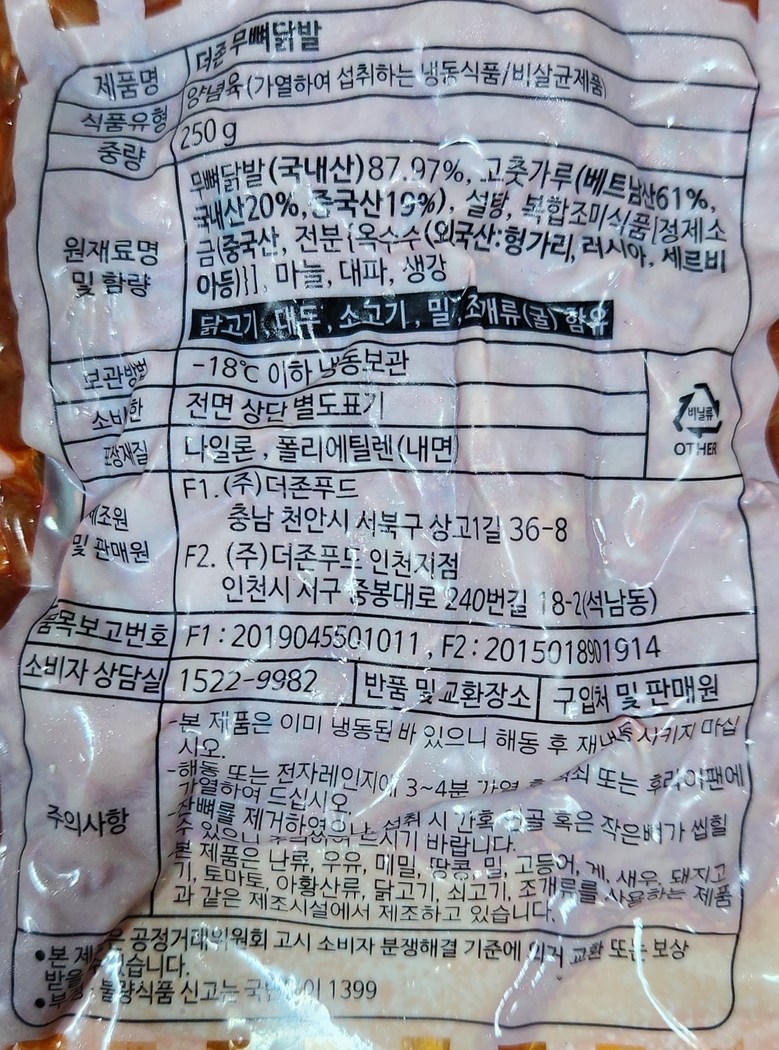 제품명 더존 무뼈닭발
식품유형 양념육 (가열하여 섭취하는 냉동식품/비살균제품)
중량 250 g
원재료명 및 함량
무뼈닭발(국내산)87.97%, 고춧가루(베트남산61%,
국내산20%,중국산19%), 설탕, 복합조미식품[정제소
금(중국산, 전분{옥수수(외국산:헝가리, 러시아, 세르비
아등)}], 마늘, 대파, 생강
닭고기, 대두, 소고기, 밀, 조개류(굴) 함유
보관방법 -18℃ 이하 냉동보관
소비 한 전면 상단 별도표기
포장재질 나일론, 폴리에틸렌(내면)
비닐류
OTHER
제조원 및 판매원
F1.(주)더존푸드
충남 천안시 서북구 상고1길 36-8
F2. (주)더존푸드 인천지점
인천시 서구 중봉대로 240번길 18-2(석남동)
품목보고번호 F1 : 2019045501011, F2 : 2015018901914
소비자 상담실 1522-9982 반품 및 교환장소 구입처 및 판매원
주의사항
-본 제품은 이미 냉동된 바 있으니 해동 후 재냉동 시키지 마십
시오.
-해동 또는 전자레인지에 3~4분 가열 후 또는 후라이팬에
가열하여 드십시오.
-잔뼈를 제거하였으나 섭취 시 간혹 혹은 작은뼈가 씹힐
수 있으니 드시기 바랍니다.
본 제품은 난류, 우유, 메밀, 땅콩, 밀, 고등어, 게, 새우, 돼지고
기, 토마토, 아황산류, 닭고기, 쇠고기, 조개류를 사용하는 제품
과 같은 제조시설에서 제조하고 있습니다.
•본 제 은 공정거래위원회 고시 소비자 분쟁해결 기준에 의거 교환 또는 보상
받을 있습니다.
• 불량식품 신고는 국번 이 1399